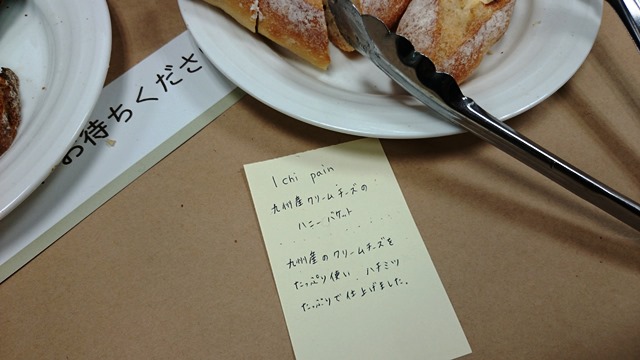 お待ちくださ
Ichi pain
九州産クリームチーズの
ハニーバケット
九州産のクリームチーズを
たっぷり使い、ハチミツ
たっぷりで仕上げました。